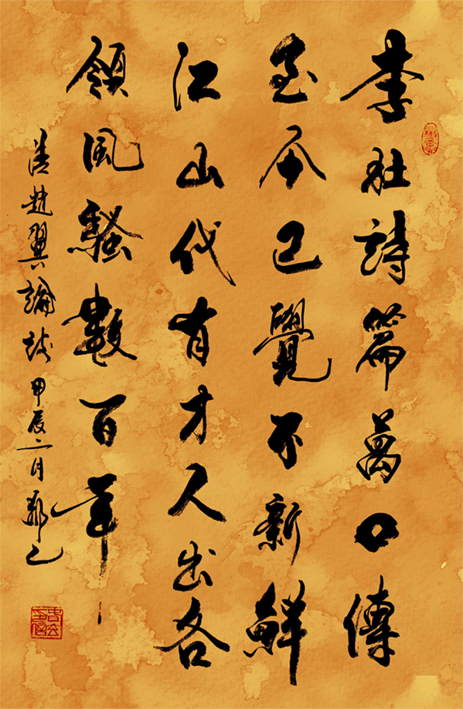 李杜詩篇萬口傳
至今已覺不新鮮
江山代有才人出各
領風騷數百年
清趙翼論詩甲辰二月